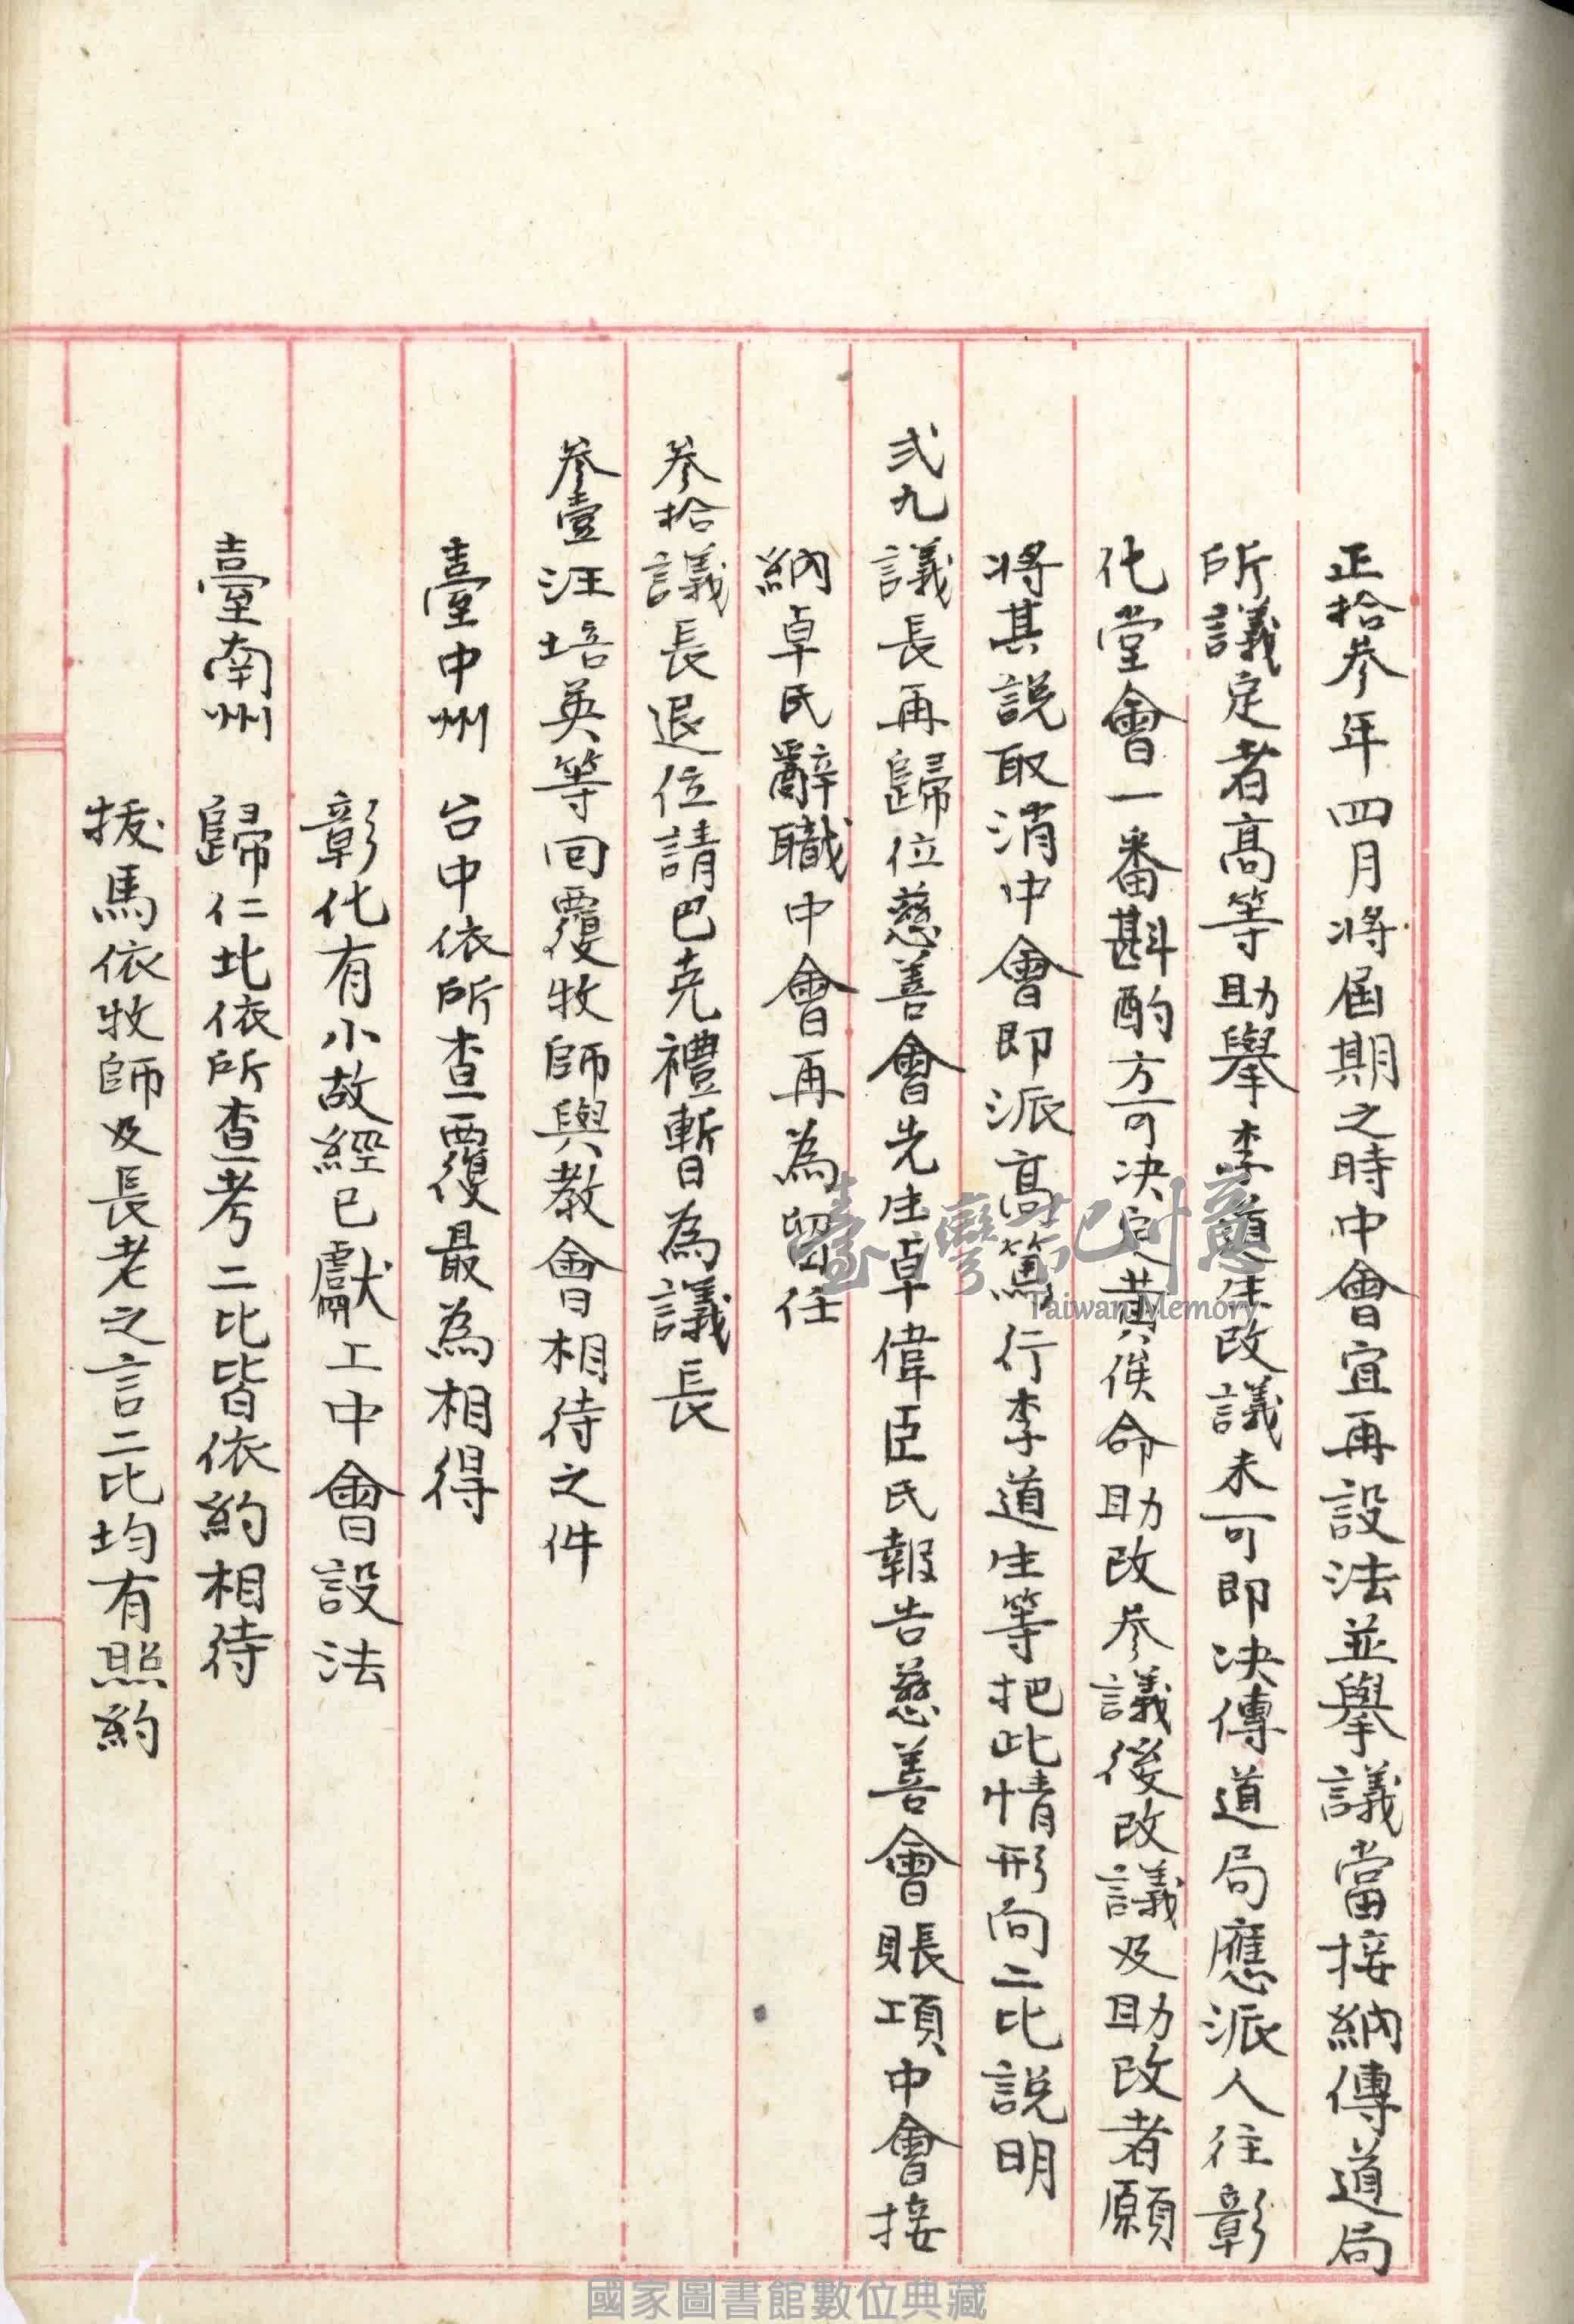 正拾參年四月將屆期之時中會宜再設法並舉議當接納傳道局
所議定者高等助舉李道生改議未可即決傳道局應派人往彰
化堂會一番斟酌方可決定黃俟命助改參議後改議及助改者願
將其說取消中會即派高篤行李道生等把此情形向二比說明
弍九議長再歸位慈善會先生卓偉臣氏報告慈善會賬項中會接
納卓氏辭職中會再為留任
參拾議長退位請巴克禮暫為議長
參壹汪培英等回覆牧師與教會相待之件
臺中州 台中依所查覆最為相得
彰化有小故經已獻工中會設法
臺南州 歸仁北依所查考二比皆依約相待
拔馬依牧師及長老之言二比均有照約
臺灣記憶
Taiwan Memory
國家圖書館數位典藏